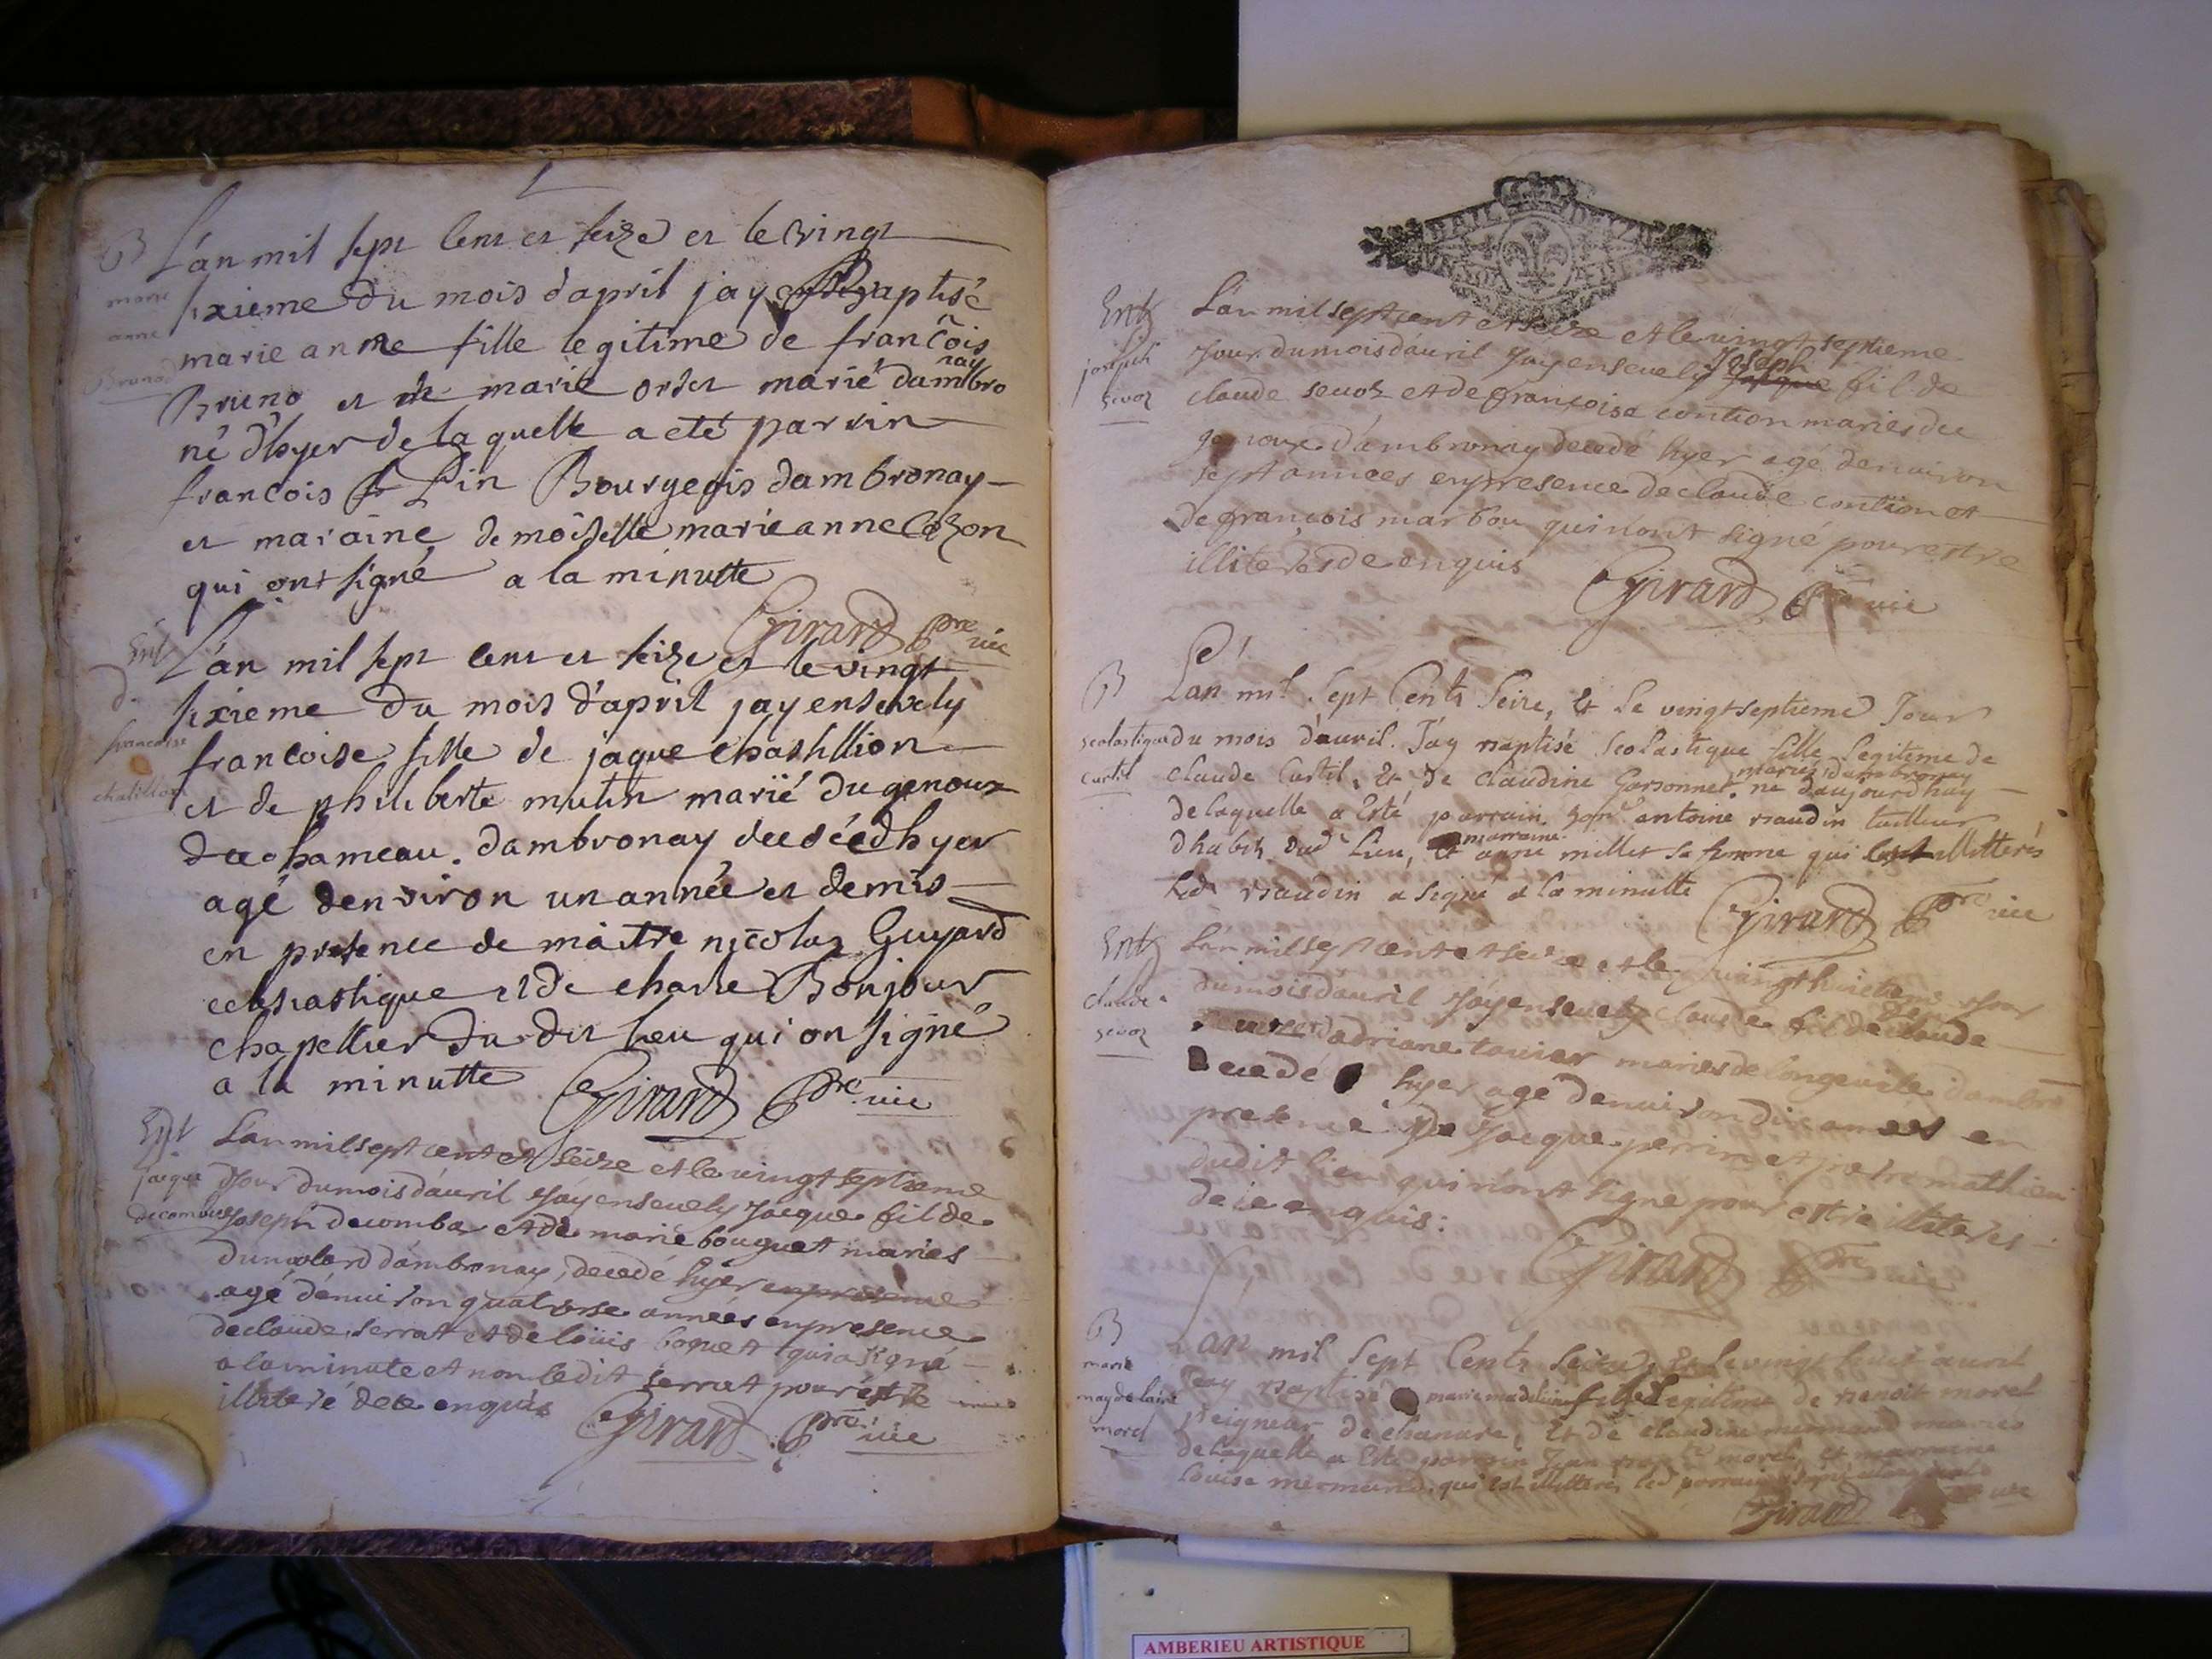 B
L'an mil sept cent et seize et le vingt
sixieme du mois d'april jay Baptisé
marie
anne
Bruno
marie anne fille legitime de francois
Bruno et de marie orset marié dambro
nay
né d'hyer de la quelle a eté parrin
francois Pin Bourgeois dambronay
et maraine demoiselle marie anne Cozon
qui ont signé a la minutte
Girard Pre vic
Ent
d.
francoise
chatillon
L'an mil sept cent et seize et le vingt
sixieme du mois d'april jay ensevely
francoise fille de jaque chastillion
et de philiberte mutin marié du genoux
hameau dambronay decedée d'hyer
agé denviron un année et demis
en presence de maitre nicolas Guyard
eclesiastique et de charle Bonjour
chapellier du dit lieu qui on signé
a la minutte Girard Pre vic
Ent
jaque
decombe
L'an mil sept cent et seize et le vingt septieme
Jour du mois d'auril Jay enseuely Jacque fil de
Joseph decombe et de marie bouguet mariés
du molard dambronay, decedé hyer en presence
agé d'enuiron quatorse années en presence
de claude serrat et de loüis boguet qui a signé
a la minute et non ledit serrat pour estre
illiteré de ce enquis Girard Pre vic
Ent
joseph
seuoz
L'an mil sept cent et seize et le vingt septieme
Jour du mois d'auril Jay enseuely Joseph fil de
claude seuoz et de françoise contion mariés du
genoux d'ambronay decedé hyer agé denuiron
sept années en presence de claude contion et
de françois marbou qui n'ont signé pour estre
illiterés de enquis Girard Pre vic
B
scolastique
curtil
L'an mil sept Cents Seize, et le vingt septieme Jour
du mois d'auril. J'ay baptisé Scolastique fille Legitime de
claude Curtil, et de claudine Garsonnet mariés dambronay
ne d'aujourdhuy
de laquelle a Esté parrain antoine naudin tailleur
dhabits dud Lieu, et marraine anne millet sa femme qui est illitterés
Led naudin a signé a la minutte Girard Pre vic
Ent
claude
seuoz
L'an mil sept cent et seize et le vingt huictieme Jour
du mois d'auril Jay enseuely claude fil de claude
seuoz et d'adriane tauier mariés de longeville dambro
decedé hyer agé denuiron dix années en
presence de Jacque perrin et pierre mathieu
dudit lieu qui n'ont signe pour estre illiterés
de ce enquis: Girard Pre
B
marie
magdelaine
morel
L'an mil Sept Cents Seize, et le vingt huit auril
Jay baptisé marie madeleine fille Legitime de benoit morel
Seigneur de chenaure, et de claudine mermand mariés
de laquelle a Esté parrain Jean morel, et marraine
Louise mermand, qui est illitterés led parrain
Girard vic
AMBERIEU ARTISTIQUE